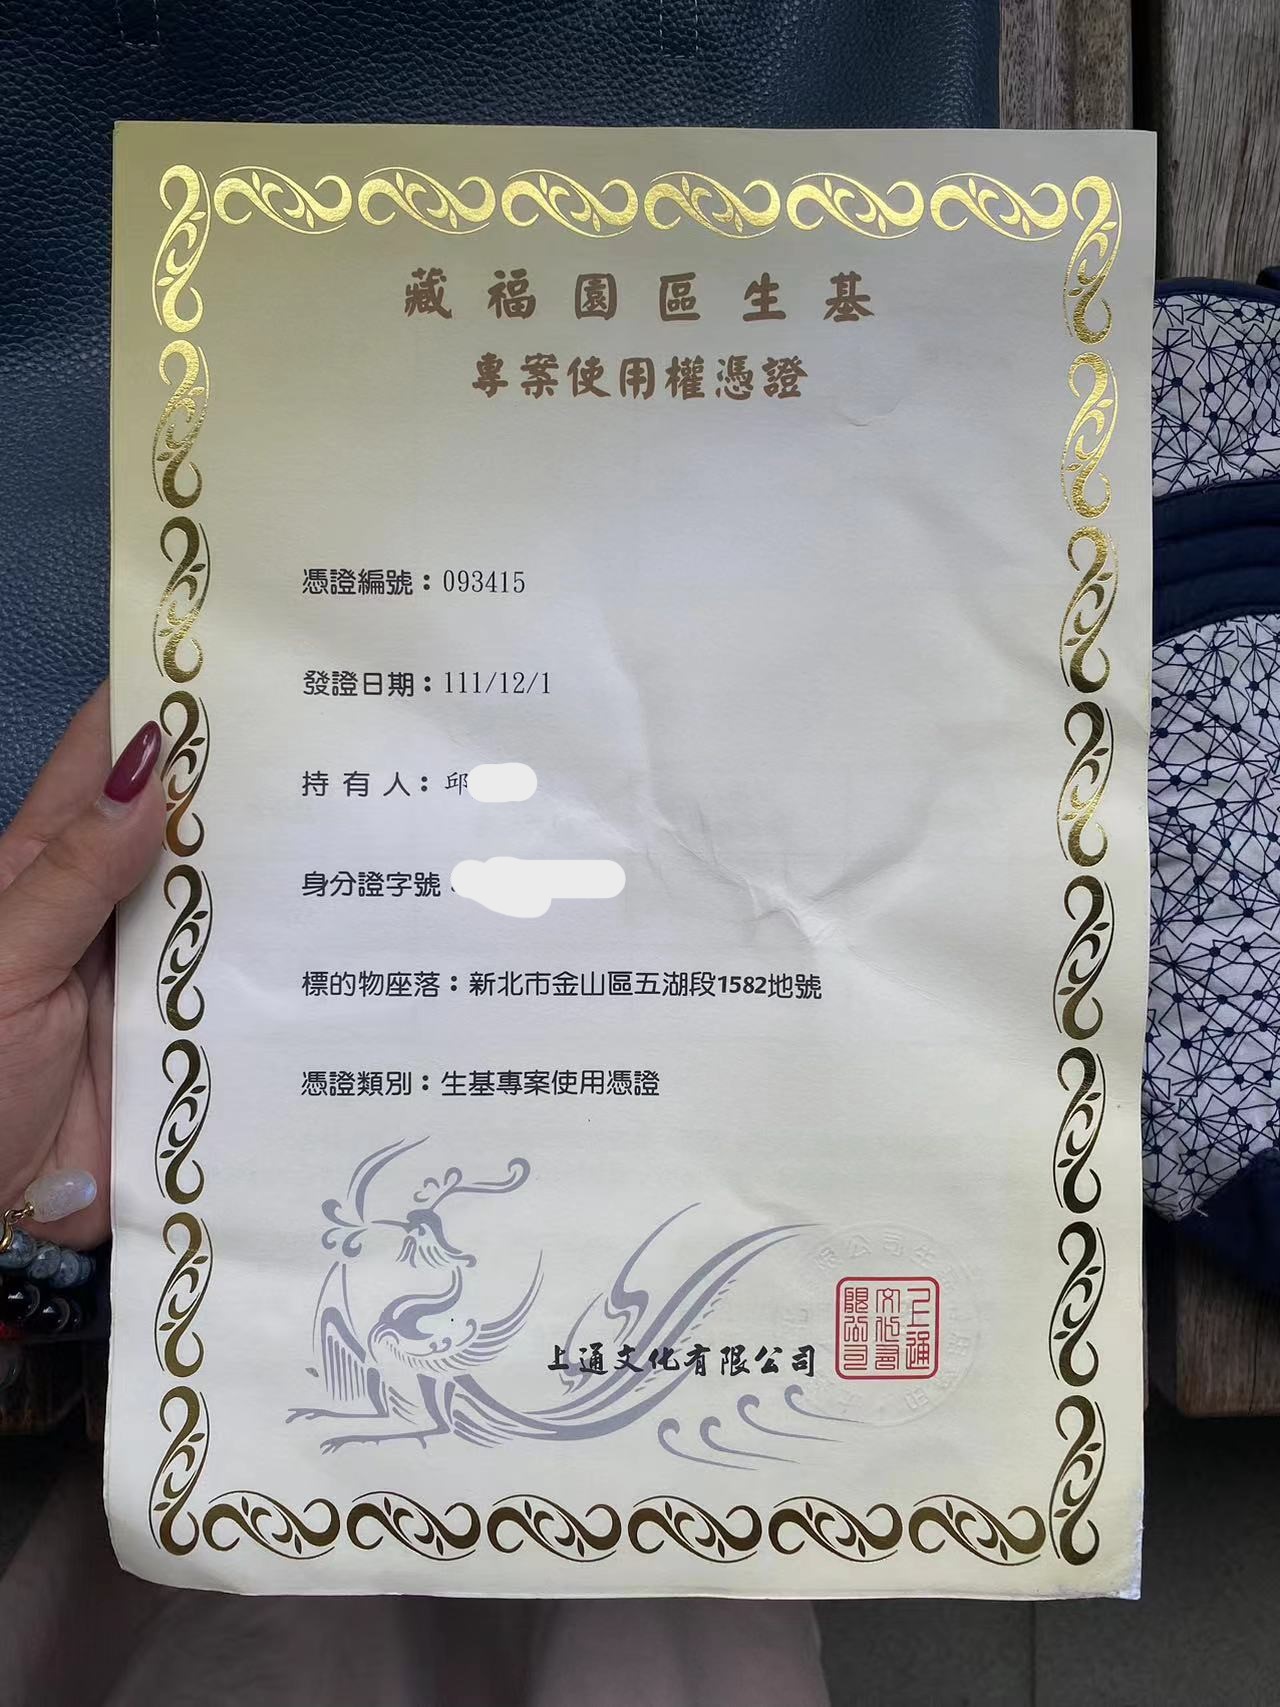 藏福園區生基
專案使用權憑證
憑證編號：093415
發證日期：111/12/1
持有人：邱
身分證字號：
標的物座落：新北市金山區五湖段1582地號
憑證類別：生基專案使用憑證
上通文化有限公司
上通文化有限公司